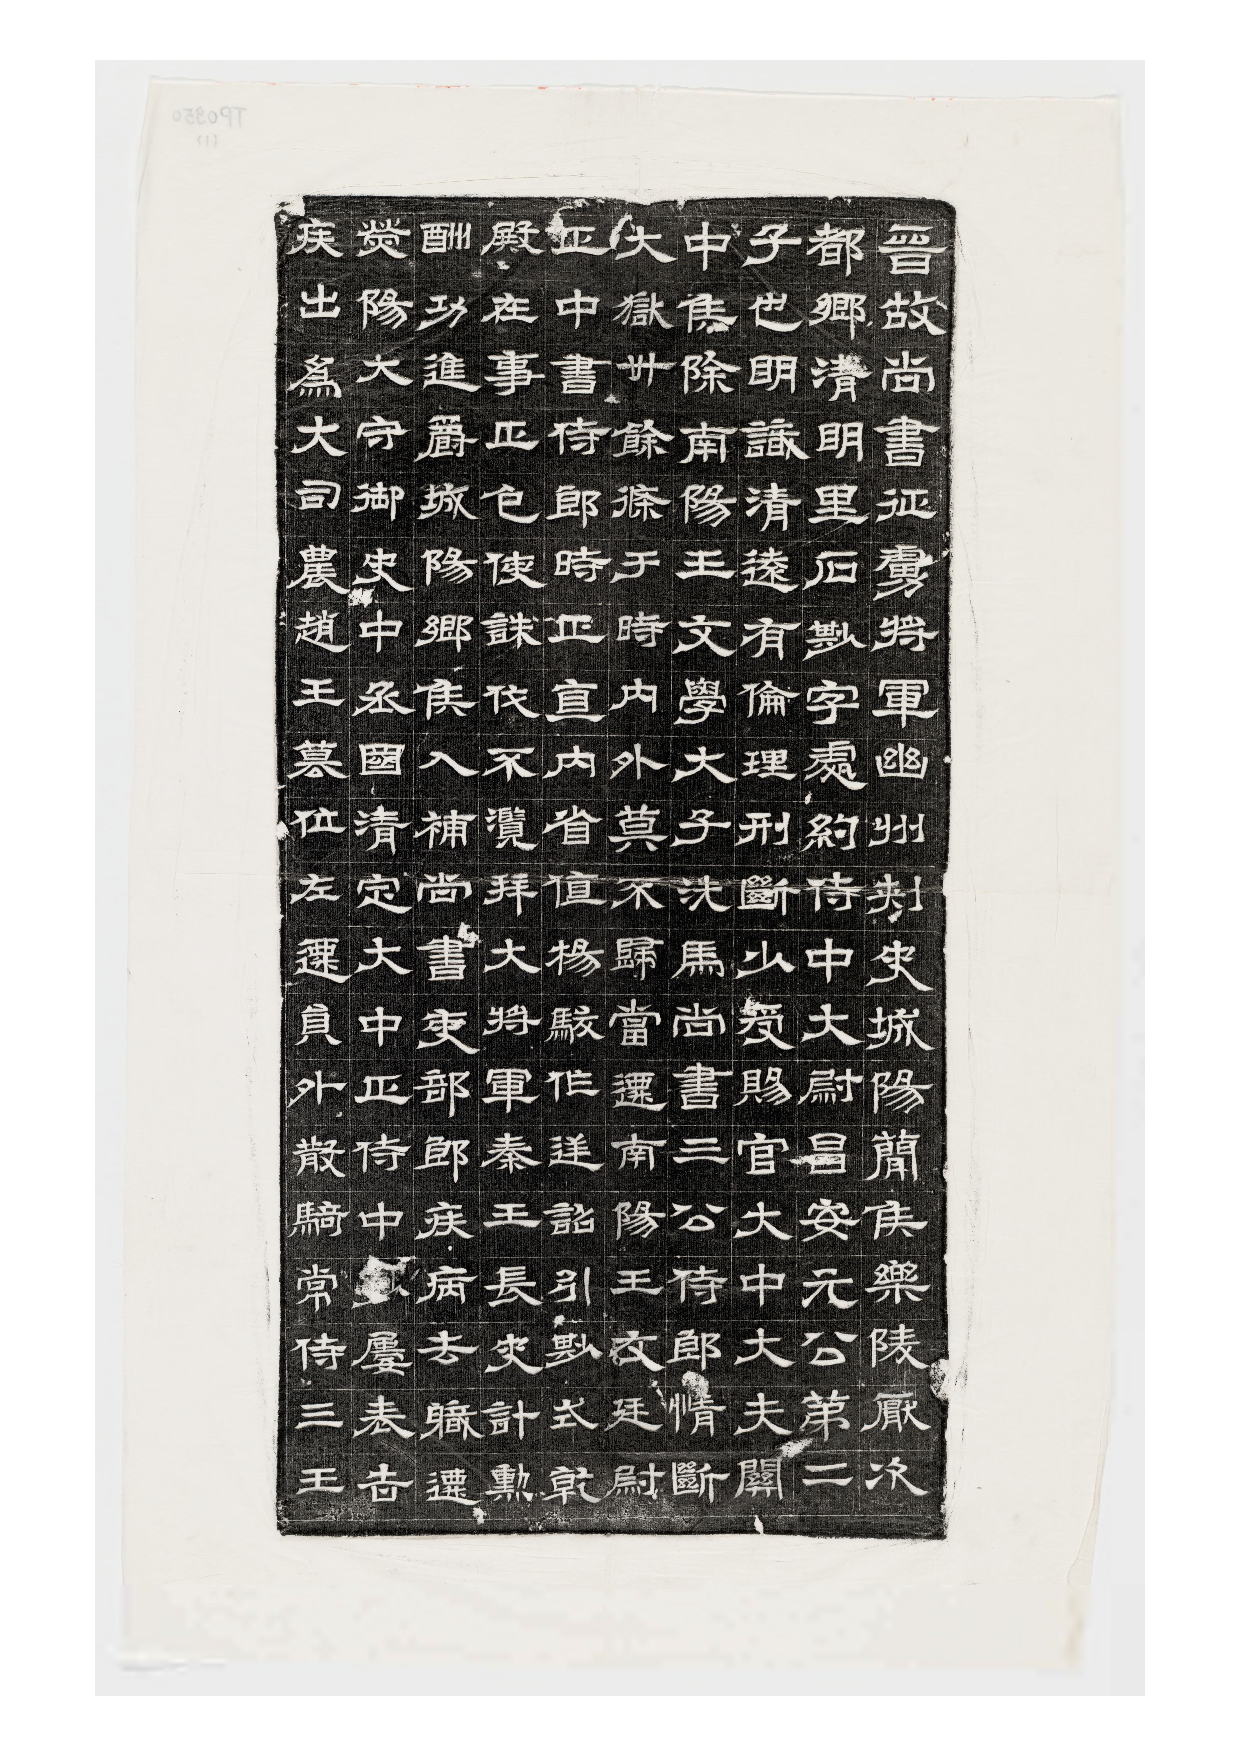 晉故尚書征虜將軍幽州刺史城陽簡侯樂陵厭次
都鄉清明里石尠字處約侍中大尉昌安元公第二
子也明識清遠有倫理刑斷少受賜官大中大夫關
中侯除南陽王文學大子洗馬尚書三公侍郎情斷
大獄卅餘條于時內外莫不歸當遷南陽王友廷尉
正中書侍郎時正直內省值楊駿作逆詔引尠式乾
殿在事正色使誅伐不濫拜大將軍秦王長史計勳
酬功進爵城陽鄉侯入補尚書吏部郎疾病去職遷
滎陽大守御史中丞國清定大中正侍中屢表告
疾出爲大司農趙王篡位左遷員外散騎常侍三王